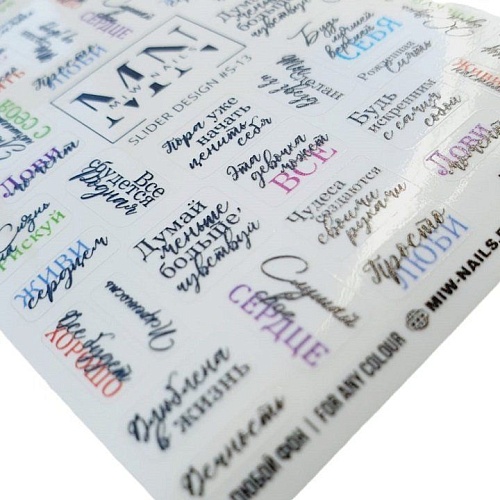 СЕРДЦЕ
Думай
меньше
больше
чувствуй
Будь
СЕБЯ
Просто
ЛЮБИ
MN
MIW NAILS
SLIDER DESIGN #S-13
из звезд
Рожденная
сиять
Пора уже
начать
ценить
себя
Будь
искренним
с самим
собой
Лови
момент
Все
сбудется
родная
Эта
девочка
может
ВСЕ
Лови
момент
Думай
меньше,
больше
чувствуй
Чудеса
создаются
своими
руками
рискуй
Просто
ЛЮБИ
ЖИВИ
сердцем
Слушай
свое
СЕРДЦЕ
Искренность
Все будет
ХОРОШО
Влюблена
в жизнь
Вечность
ЛЮБОЙ ФОН | FOR ANY COLOUR
MIW-NAILS.